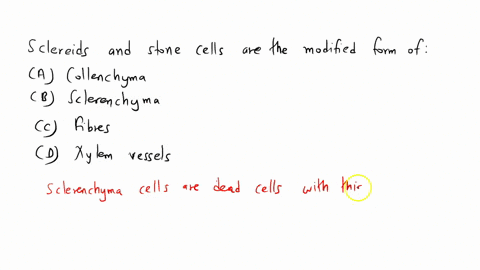 Sclereids and stone cells are the modified form of:
(A) Collenchyma
(B) Sclerenchyma
(C) Fibres
(D) Xylem vessels
Sclerenchyma cells are dead cells with thic